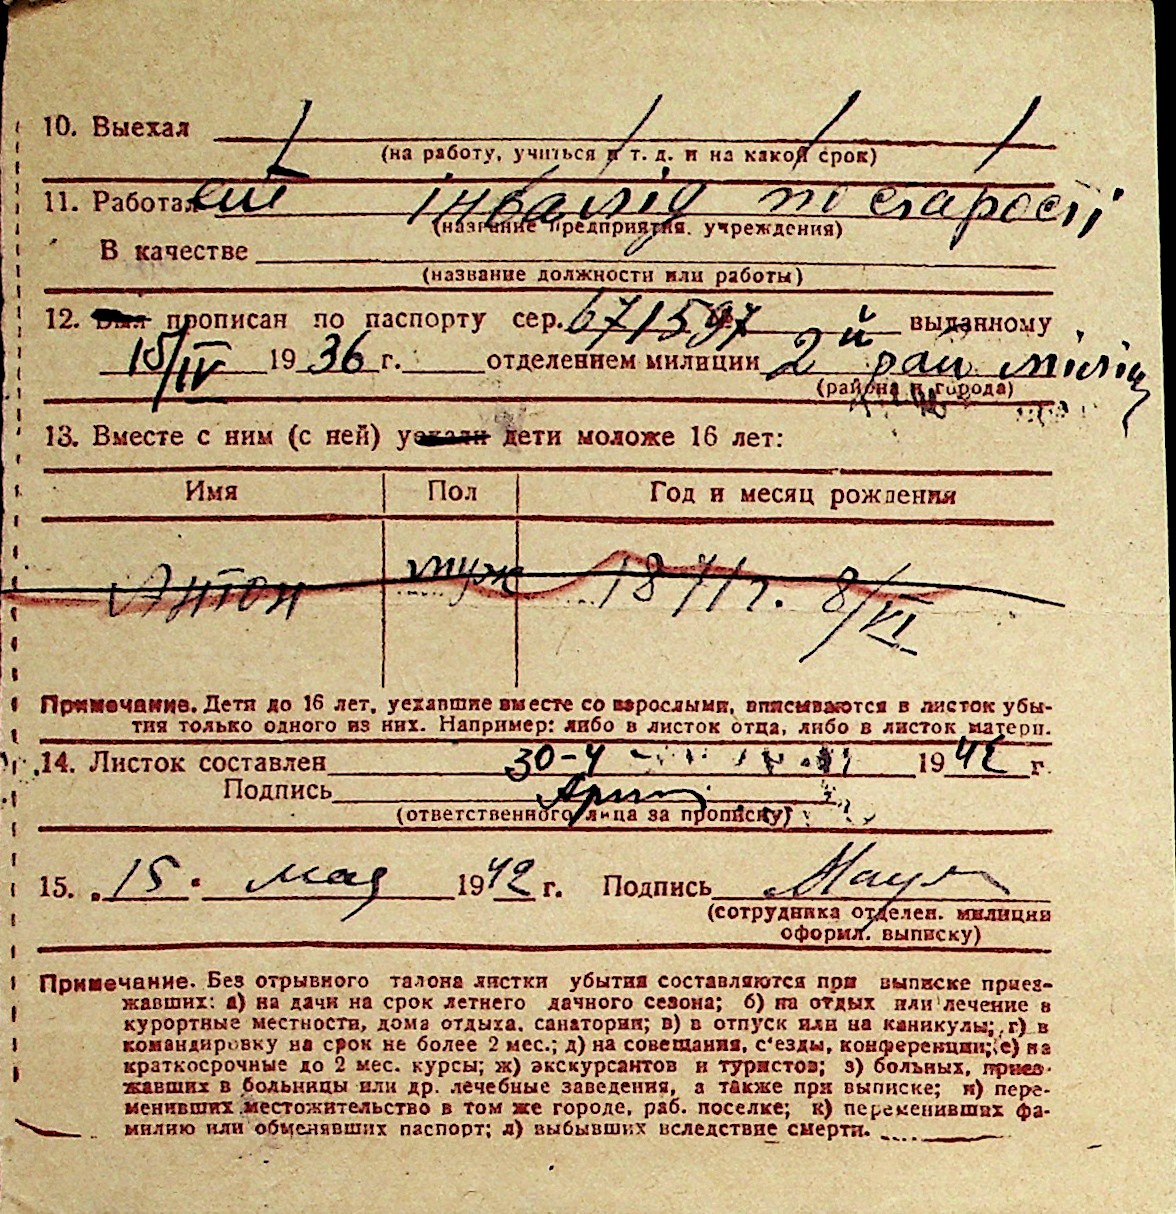 10. Выехал
(на работу, учиться и т. д. и на какой срок)
11. Работал інвалід по старості
(название предприятия, учреждения)
В качестве
(название должности или работы)
12. Был прописан по паспорту сер. 671597 выданному
15/IV 1936 г. отделением милиции 2й рай міліц
(района и города)
13. Вместе с ним (с ней) уехали дети моложе 16 лет:
Имя Пол Год и месяц рождения
Антон муж 1871 г. 8/VI
Примечание. Дети до 16 лет, уехавшие вместе со взрослыми, вписываются в листок убы-
тия только одного из них. Например: либо в листок отца, либо в листок матери.
14. Листок составлен 30-4 1942 г.
Подпись
(ответственного лица за прописку)
15. „15" мая 1942 г. Подпись
(сотрудника отделен. милиции
оформ. выписку)
Примечание. Без отрывного талона листки убытия составляются при выписке приез-
жавших: а) на дачи на срок летнего дачного сезона; б) на отдых или лечение в
курортные местности, дома отдыха, санатории; в) в отпуск или на каникулы; г) в
командировку на срок не более 2 мес.; д) на совещания, с'езды, конференции; е) на
краткосрочные до 2 мес. курсы; ж) экскурсантов и туристов; з) больных, приез-
жавших в больницы или др. лечебные заведения, а также при выписке; и) пере-
менивших местожительство в том же городе, раб. поселке; к) переменивших фа-
милию или обменявших паспорт; л) выбывших вследствие смерти.